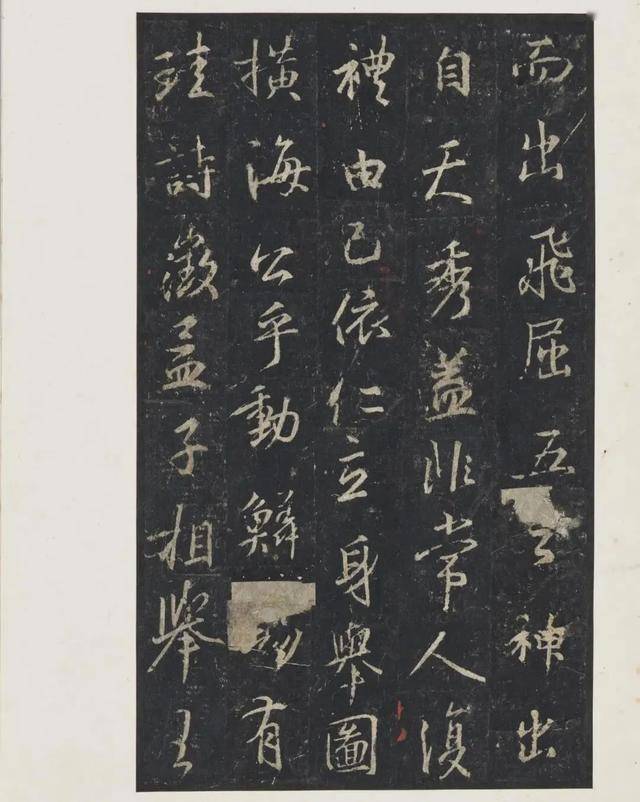 而出飛屈五雲神出
自天秀蓋非常人復
禮由己依仁立身舉圖
橫海公乎動鱗有
珪詩激孟子相舉王